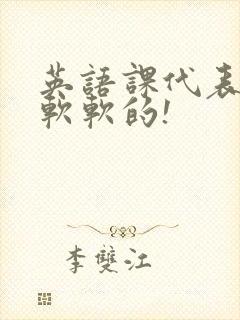 英語課代表
軟軟的!
李雙江